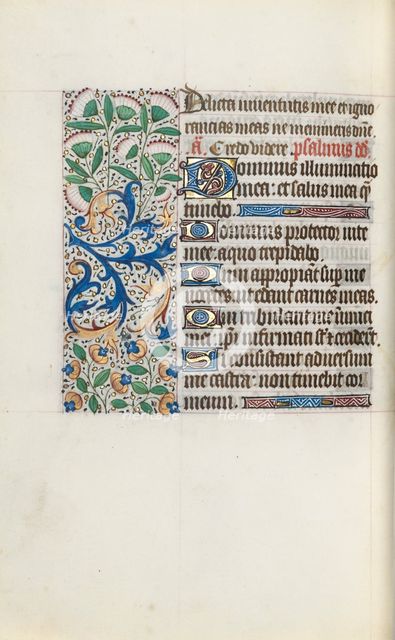 Delicta iuuentutis mee et igno
rancias meas ne memineris dñe
A. Credo videre. psalmus dd
Dominus illuminatio
mea: et salus mea q̄
timebo.
Dominus protector uite
mee: a quo trepidabo.
Dum appropiāt sup me
nocentes: ut edant carnes meas.
Qui tribulant me inimici
mei: ip̄i infirmati sūt et ceciderūt.
Si consistant aduersum
me castra: non timebit cor
meum.
Heritage
Heritage